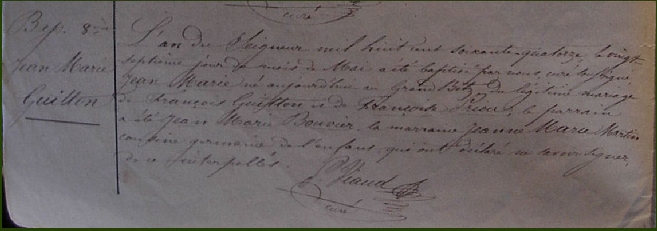 curé
Bap. 8e
Jean Marie
Guitton
L'an du Seigneur mil huit cent soixante-quatorze, le vingt
septième jour du mois de Mai a été baptisé par nous, curé soussigné,
Jean Marie né aujourd'hui au Grand du légitime mariage
de François Guitton et de Françoise ; le parrain
a été Jean Marie Bouvier, la marraine Jeanne Marie Martin
cousine germaine de l'enfant, qui ont déclaré ne savoir signer,
de ce interpellés.
Viaud
curé